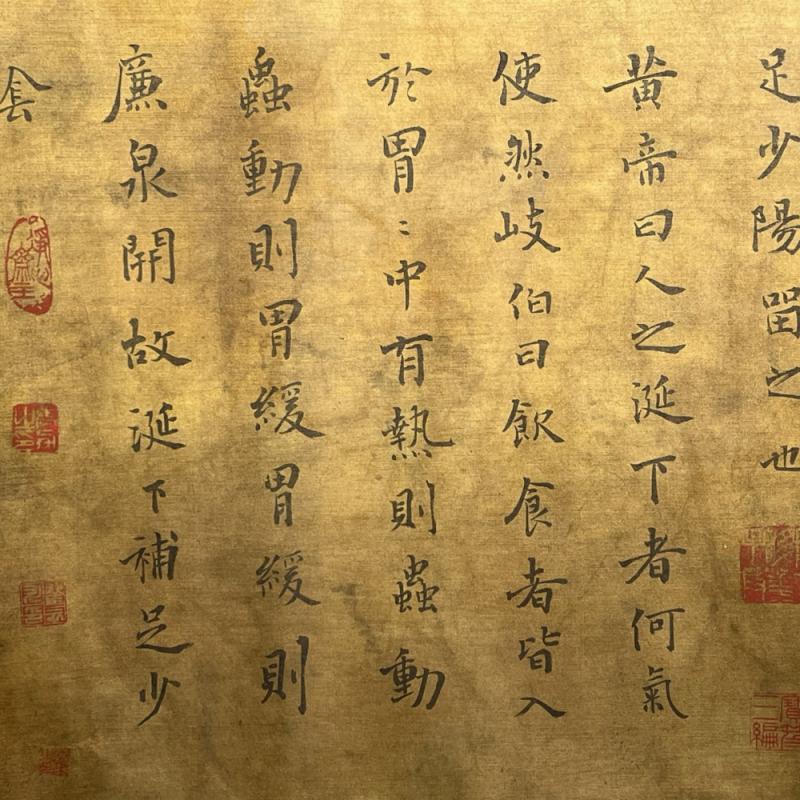 足少陽留之也
黄帝曰人之涎下者何氣
使然岐伯曰飲食者皆入
於胃〻中有熱則蟲動
蟲動則胃緩胃緩則
廉泉開故涎下補足少
陰